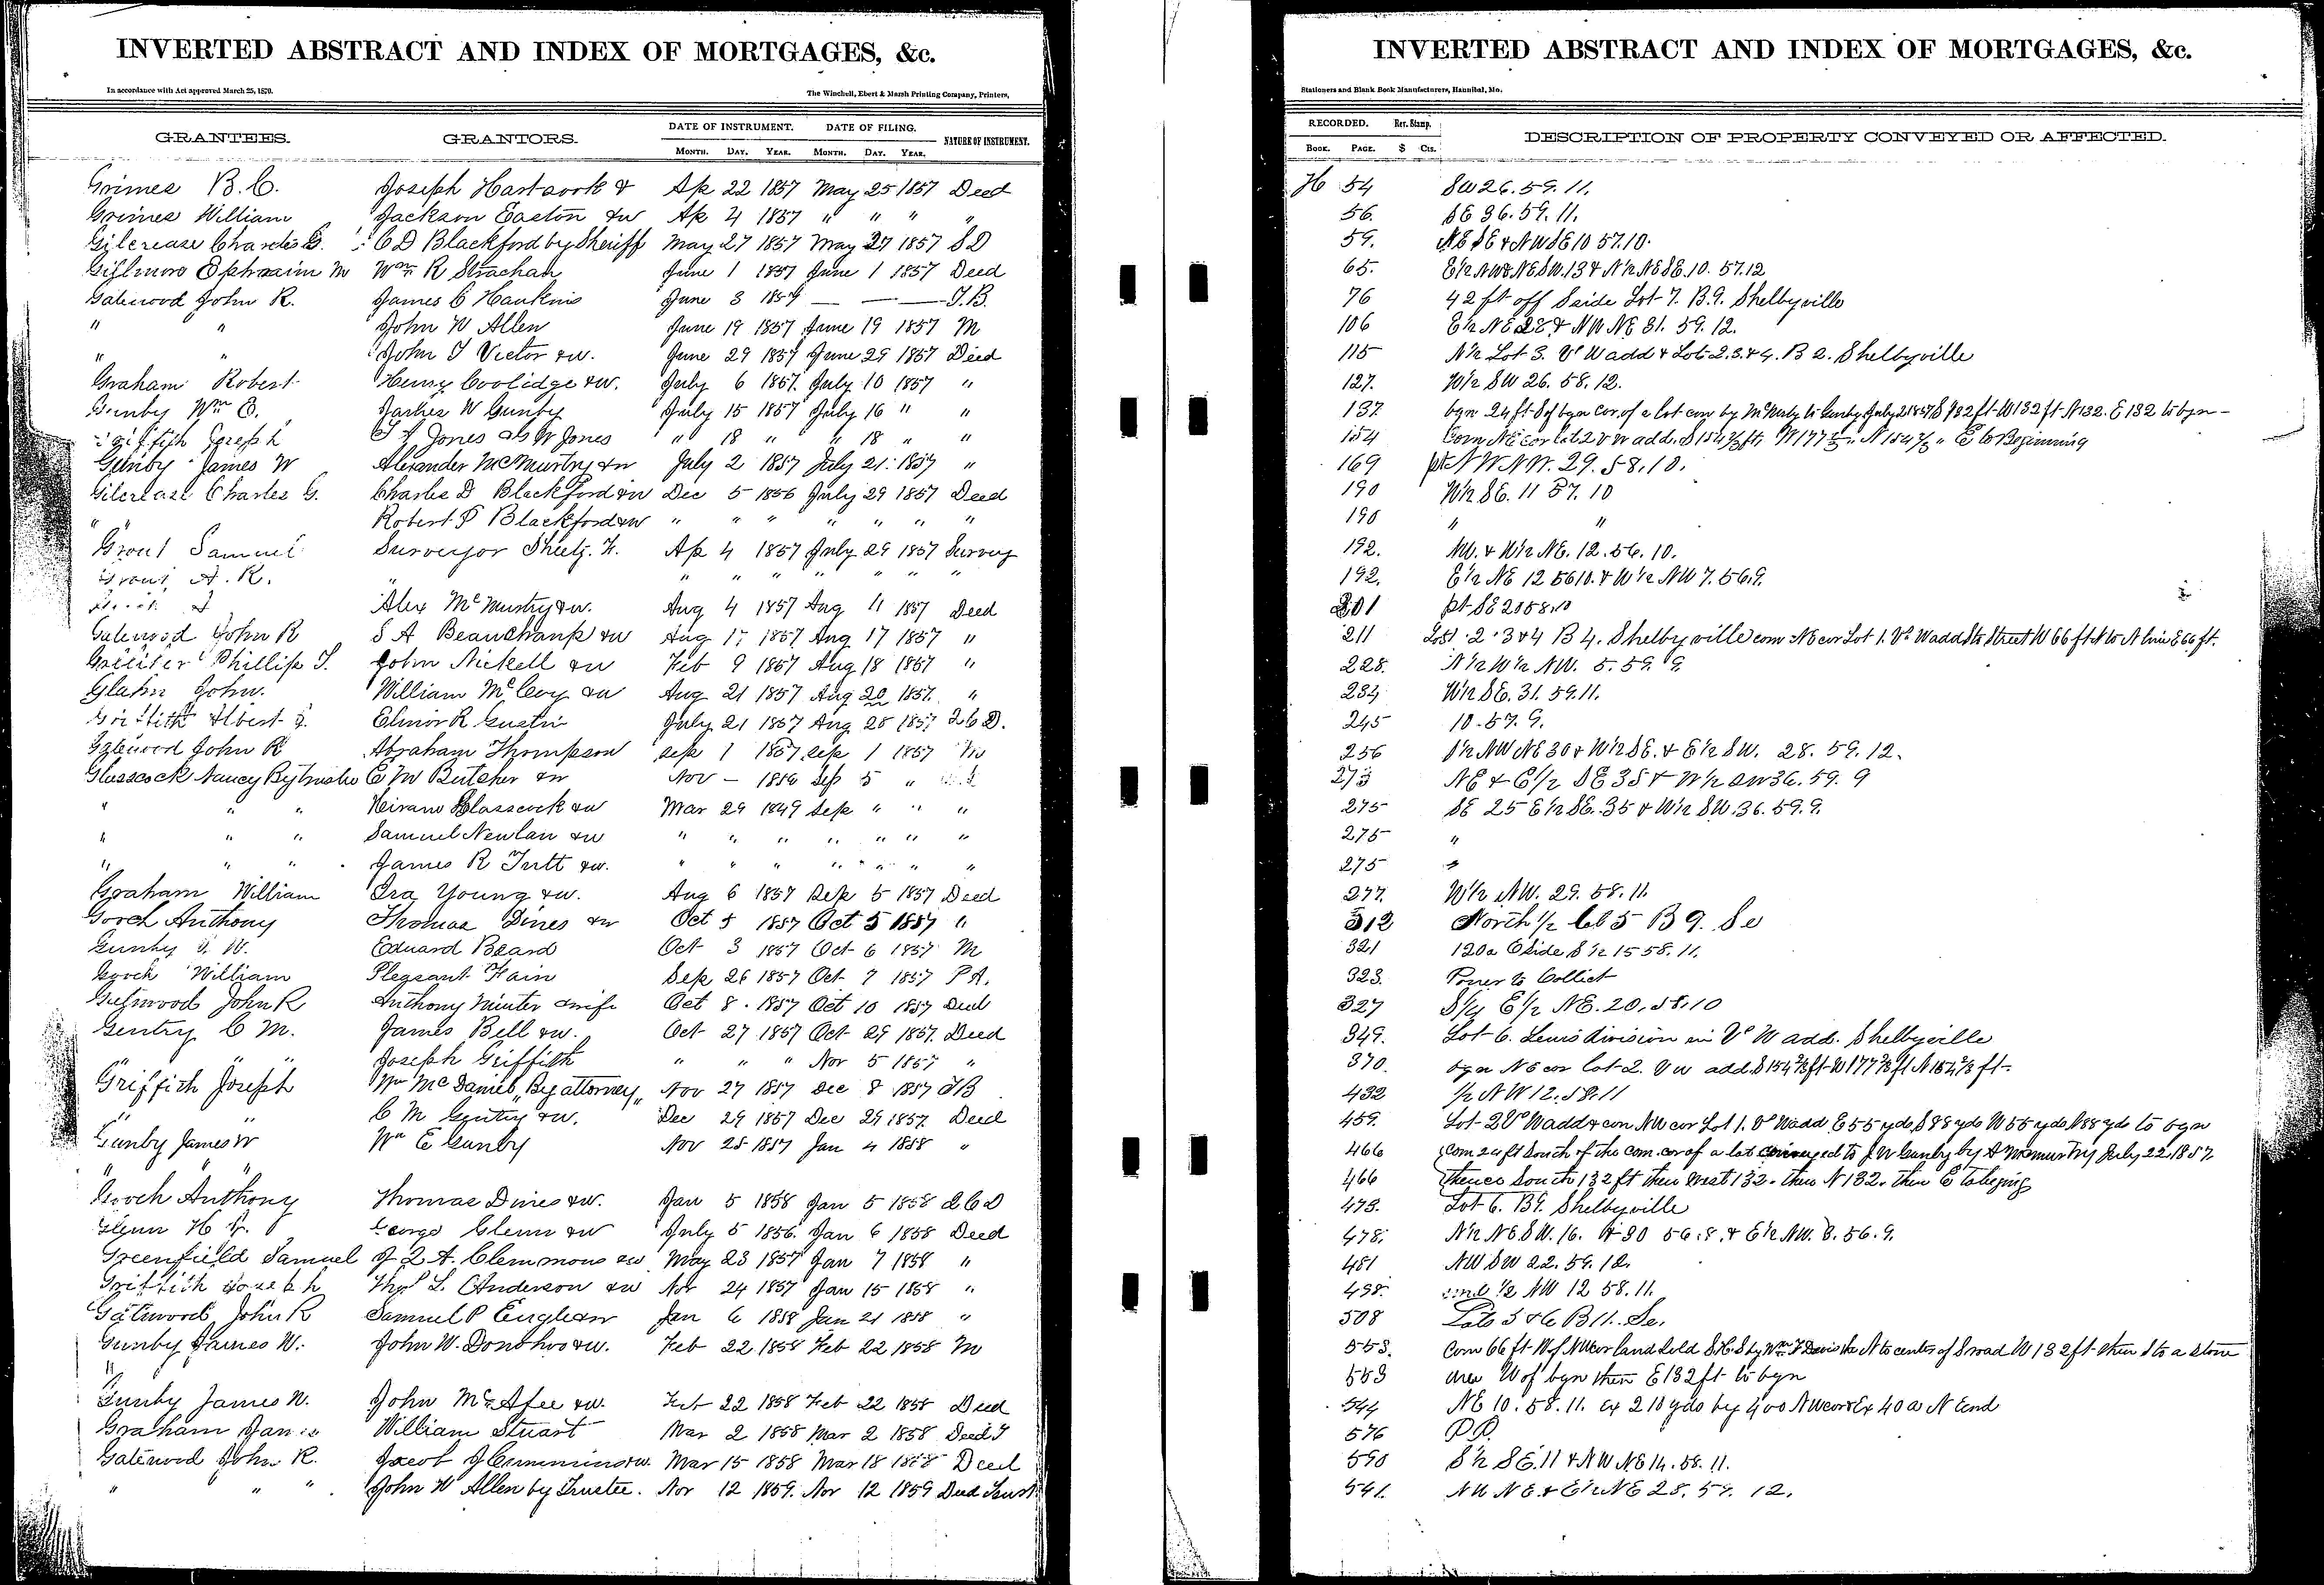 INVERTED ABSTRACT AND INDEX OF MORTGAGES, &c.
In accordance with Act approved March 25, 1870. The Winchell, Ebert & Marsh Printing Company, Printers,
GRANTEES. GRANTORS. DATE OF INSTRUMENT. DATE OF FILING. NATURE OF INSTRUMENT.
MONTH. DAY. YEAR. MONTH. DAY. YEAR.
Grimes B. C. Joseph Hartsook & Ap 22 1857 May 25 1857 Deed
Grimes William Jackson Easton &w Ap 4 1857 " " " "
Gilcrease Charles G. C D Blackford by Sheriff May 27 1857 May 27 1857 S D
Gillmore Ephraim M Wm R Strachan June 1 1857 June 1 1857 Deed
Gatewood John R. James C Hankins June 3 1857 — — — T.B.
" " John W Allen June 19 1857 June 19 1857 M
" " John T Victor &w. June 29 1857 June 29 1857 Deed
Graham Robert Henry Coolidge &w. July 6 1857. July 10 1857 "
Gunby Wm E. James W Gunby July 15 1857 July 16 " "
Griffith Joseph T A Jones W Jones " 18 " " 18 " "
Gunby James W Alexander McMurtry &w July 2 1857 July 21 1857 "
Gilcrease Charles G. Charles D Blackford &w Dec 5 1856 July 29 1857 Deed
" Robert P Blackford &w " " " " " " "
Grout Samuel Surveyor Sheetz. F. Ap 4 1857 July 29 1857 Survey
Grout A. R. " " " " " " " "
Alex McMurtry &w. Aug 4 1857 Aug 11 1857 Deed
Gatewood John R S A Beauchamp &w Aug 17 1857 Aug 17 1857 "
Phillip T. John Nickell &w Feb 9 1857 Aug 18 1857 "
Glahn John. William McCoy &w Aug 21 1857 Aug 1857. "
Griffith Albert G. Elinor R Gustin July 21 1857 Aug 28 1857 2 C D.
Gatewood John R Abraham Thompson Sep 1 1857 Sep 1 1857 M
Glasscock Nancy By Trustee E M Butcher &w Nov — 1856 Sep 5 "
" " " Hiram Glasscock &w Mar 29 1849 Sep " " "
" " " Samuel Newlan &w " " " " " " "
" " " James R Tutt &w. " " " " " " "
Graham William Ira Young &w. Aug 6 1857 Sep 5 1857 Deed
Gooch Anthony Thomas Dines &w Oct 5 1857 Oct 5 1857 "
Gunby J. W. Eduard Beard Oct 3 1857 Oct 6 1857 M
Gooch William Pleasant Fain Sep 26 1857 Oct 7 1857 P A.
Gatewood John R Anthony Minter &wife Oct 8. 1857 Oct 10 1857 Deed
Gentry C M. James Bell &w. Oct 27 1857 Oct 29 1857. Deed
" " Joseph Griffith " " " Nov 5 1857 "
Griffith Joseph Wm McDaniel "By attorney" Nov 27 1857 Dec 8 1857 T B
" " C M Gentry &w. Dec 29 1857 Dec 29 1857. Deed
Gunby James W Wm E Gunby Nov 25 1857 Jan 4 1858 "
" "
Gooch Anthony Thomas Dines &w. Jan 5 1858 Jan 5 1858 2 C D
Glenn H George Glenn &w July 5 1856. Jan 6 1858 Deed
Greenfield Samuel J Q A. Clemmons &w May 23 1857 Jan 7 1858 "
Griffith Joseph Thos L. Anderson &w Nov 24 1857 Jan 15 1858 "
Gatewood John R Samuel P Englean Jan 6 1858 Jan 21 1858 "
Gunby James W. John W. Donohoo &w. Feb 22 1858 Feb 22 1858 M
"
Gunby James W. John McAfee &w. Feb 22 1858 Feb 22 1858 Deed
Graham James William Stuart Mar 2 1858 Mar 2 1858 Deed T
Gatewood John R. Jacob J Cummins &w. Mar 15 1858 Mar 18 1858 Deed
" " " John W Allen by Trustee. Nov 12 1859. Nov 12 1859 Deed Trust
INVERTED ABSTRACT AND INDEX OF MORTGAGES, &c.
Stationers and Blank Book Manufacturers, Hannibal, Mo.
RECORDED. Rev. Stamp. DESCRIPTION OF PROPERTY CONVEYED OR AFFECTED.
BOOK. PAGE. $ Cts.
H 54 SW 26. 59. 11.
56. SE 36. 59. 11.
59. NE SE & NW SE 10 57. 10.
65. E½ NW & NE SW. 13 & N½ NE SE. 10. 57. 12
76 42 ft off S side Lot 7. B. 9. Shelbyville
106 E½ NE 28 & NW NE 31. 59. 12.
115 N½ Lot 3. V W add & Lots 2. 3. & 4. B 2. Shelbyville
127. W½ SW 26. 58. 12.
137 bgn 24 ft S of bgn cor. of a lot con by McMurty to Gunby July 2 1857 S 132 ft W 132 ft N 132. E 132 to bgn –
154 Com NE cor lot 2 V W add. S 154⅔ ft W 177 N 154⅔ " E to Beginning
169 pt NW NW. 29. 58. 10.
190 W½ SE. 11 57. 10
190 " "
192. NW. & W½ NE. 12. 56. 10.
192. E½ NE 12 56 10. & W½ NW 7. 56. 9.
201 pt SE 20 58. 10
211 Lot 1 2 3 & 4 B 4. Shelbyville com NE cor Lot 1. V W add S to Street W 66 ft N to N line E 66 ft.
228. N½ W½ NW. 5. 59. 9.
234 W½ SE. 31. 59. 11.
245 10. 57. 9.
256 S½ NW NE 30 & W½ SE. & E½ SW. 28. 59. 12.
273 NE & E 1/2 SE 35 & W½ SW 36. 59. 9
275 SE 25 E½ SE. 35 & W½ SW. 36. 59. 9.
275 "
275 "
277. W½ NW. 29. 58. 11.
312 North ½ lot 5 B 9. Se
321 120 a E side S ½ 15 58. 11.
323. Power to Collect
327 S¼ E½ NE. 20. 58. 10
349. Lot 6. Lewis division in V W add. Shelbyville
370. bgn NE cor lot 2. V W add. S 154⅔ ft W 177⅔ ft N 154⅔ ft –
432 ½ NW 12. 58. 11
459. Lot 2 V W add & con NW cor Lot 1. V W add E 55 yds S 88 yds W 55 yds N 88 yds to bgn
466 Com 24 ft South of the com. cor of a lot conveyed to J. W Gunby by A McMurtry July 22. 1857.
466 thence South 132 ft then West 132. then N 132. then E to beging
473. Lot 6. B9. Shelbyville
478. N½ NE SW. 16. 56. 8. & E½ NW. 8. 56. 9.
481 NW SW 22. 59. 12.
498. ½ NW 12 58. 11.
508 Lots 5 & 6 B 11. Se.
553. Com 66 ft W of NW cor land sold by Wm F Davis N to center of S road W 132 ft then S to a stone
553 W of bgn then E 132 ft to bgn
544 NE 10. 58. 11. Ex 210 yds by 400 NW cor & Ex 40 a N End
576 P.P.
590 S½ SE. 11 & NW NE 14. 58. 11.
541. NW NE & E½ NE 28. 59. 12.